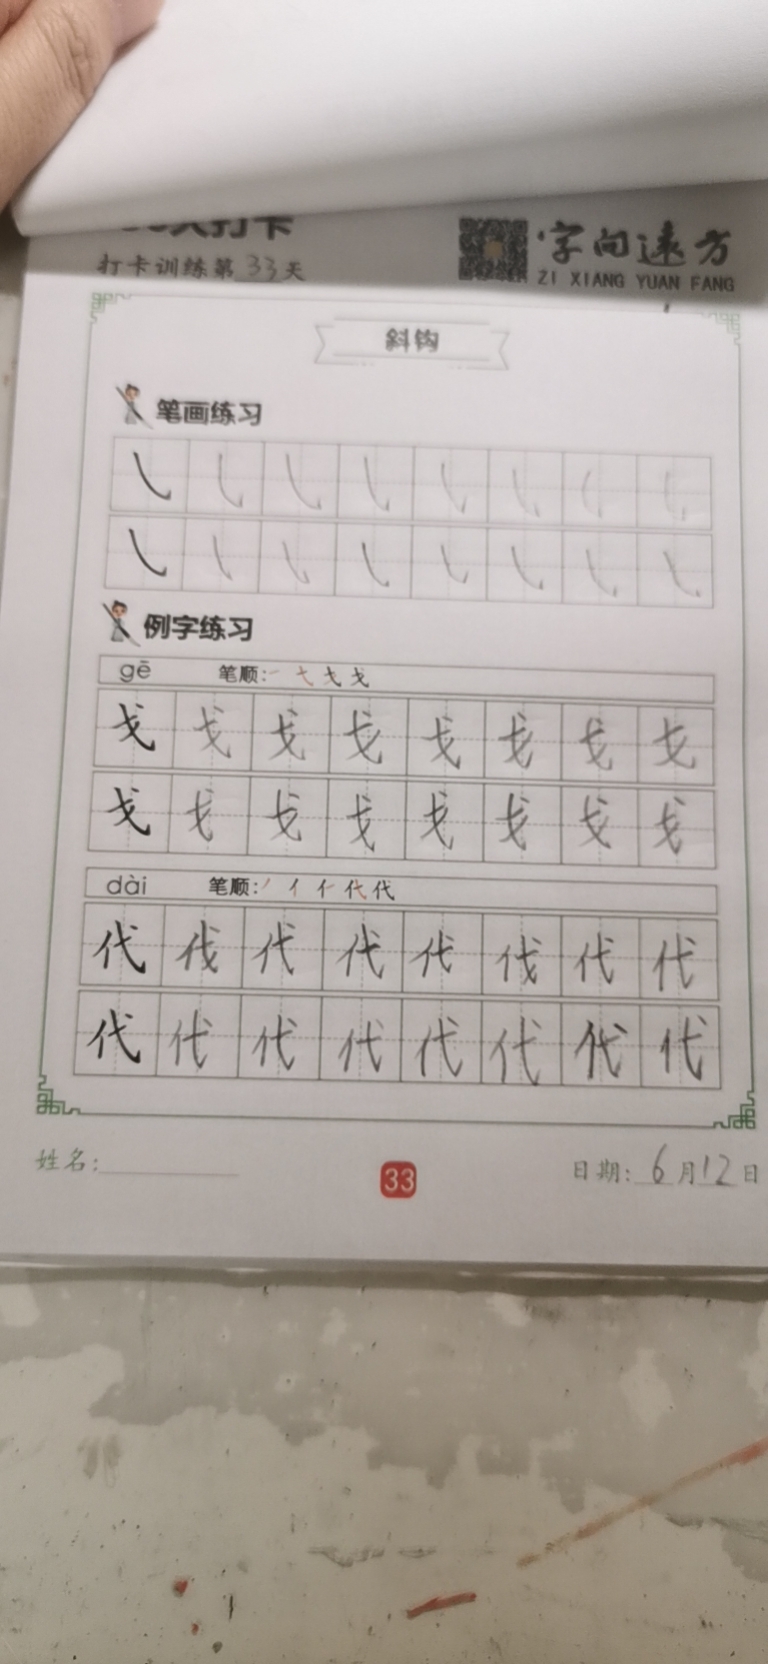 打卡
字向远方
打卡训练第33天
ZI XIANG YUAN FANG
斜钩
笔画练习
例字练习
gē 笔顺: 一 弋 戈 戈
戈 戈 戈 戈 戈 戈 戈 戈
戈 戈 戈 戈 戈 戈 戈 戈
dài 笔顺: 丿 亻 仁 代 代
代 伐 代 代 代 伐 代 代
代 代 代 代 代 代 代 代
姓名:
33
日期: 6月12日